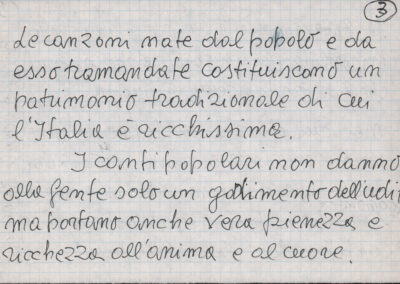 3
Le canzoni nate dal popolo e da
esso tramandate costituiscono un
patrimonio tradizionale di cui
l'Italia è ricchissima.
I canti popolari non danno
alla gente solo un godimento dell'udi
ma portano anche vera pienezza e
ricchezza all'anima e al cuore.